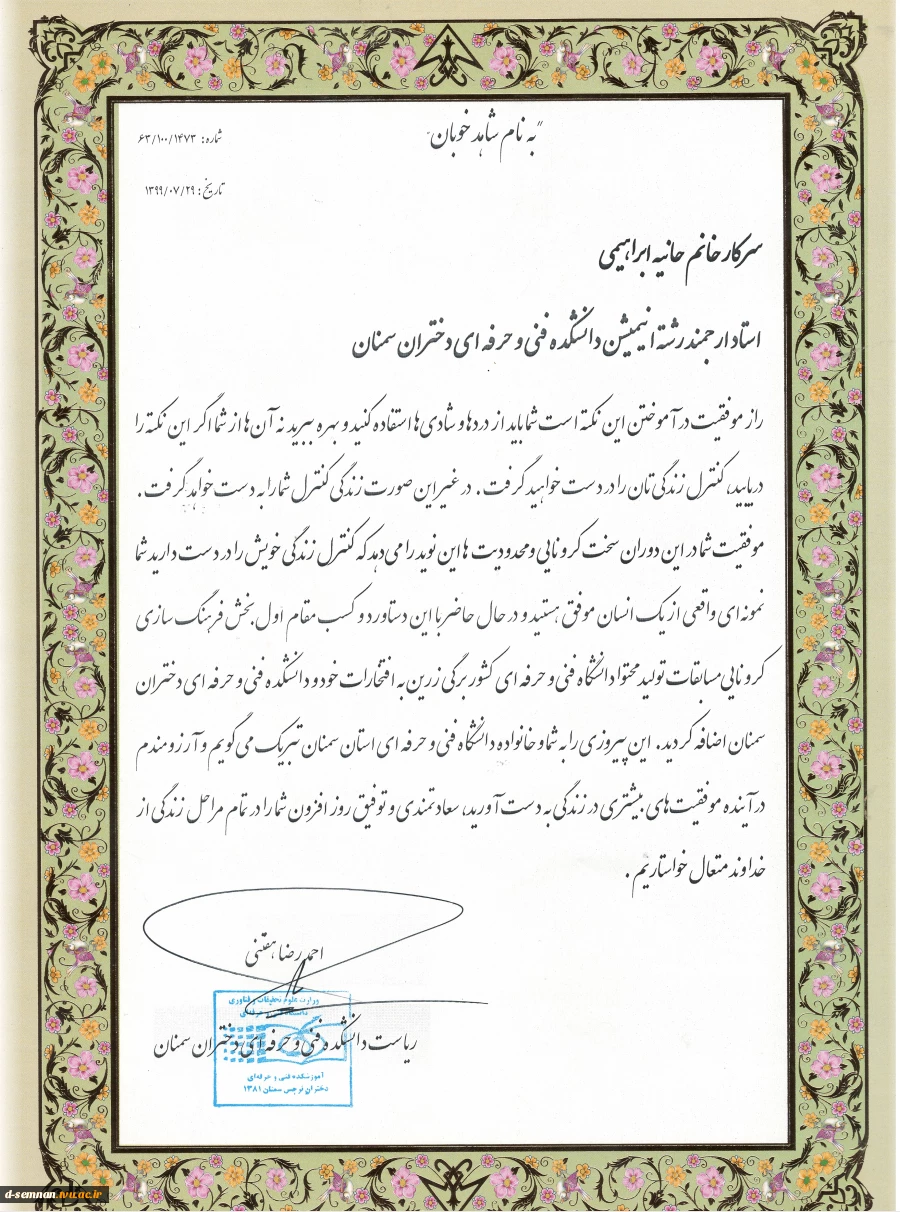 "به نام شاهد خوبان"
شماره: ۶۳/۱۰۰/۱۴۷۳
تاریخ: ۱۳۹۹/۰۷/۲۹
سرکار خانم حانیه ابراهیمی
استاد ارجمند رشته انیمیشن دانشکده فنی و حرفه ای دختران سمنان
راز موفقیت در آموختن این نکته است شما باید از دردها و شادی ها استفاده کنید و بهره ببرید نه آن ها از شما اگر این نکته را
دریابید، کنترل زندگی تان را در دست خواهید گرفت. در غیر این صورت زندگی کنترل شما را به دست خواهد گرفت.
موفقیت شما در این دوران سخت کرونایی و محدودیت ها این نوید را می دهد که کنترل زندگی خویش را در دست دارید شما
نمونه ای واقعی از یک انسان موفق هستید و در حال حاضر با این دستاورد و کسب مقام اول بخش فرهنگ سازی
کرونایی مسابقات تولید محتوا دانشگاه فنی و حرفه ای کشور برگی زرین به افتخارات خود و دانشکده فنی و حرفه ای دختران
سمنان اضافه کردید. این پیروزی را به شما و خانواده دانشگاه فنی و حرفه ای استان سمنان تبریک می گویم و آرزومندم
در آینده موفقیت های بیشتری در زندگی به دست آورید، سعادتمندی و توفیق روز افزون شما را در تمام مراحل زندگی از
خداوند متعال خواستاریم.
احمد رضا هفتنی
وزارت علوم تحقیقات و فناوری
ریاست دانشکده فنی و حرفه ای دختران سمنان
آموزشکده فنی و حرفه‌ای
دختران نرجس سمنان ۱۳۸۱
d-semnan.tvu.ac.ir